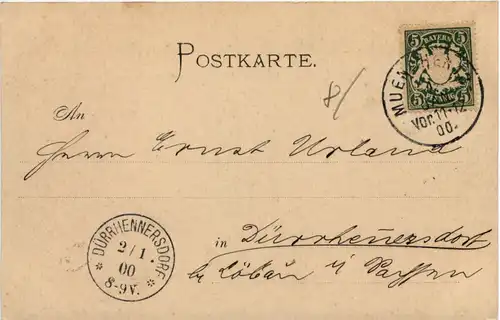 5 BAYERN 5
5 5
MUENCHEN
VOR. 11-12
00.
POSTKARTE.
8/
An
Herrn Ernst Urland
in Dürrhennersdorf
bei Löbau i Sachsen
DÜRRHENNERSDORF
2/1.
00
8-9V.